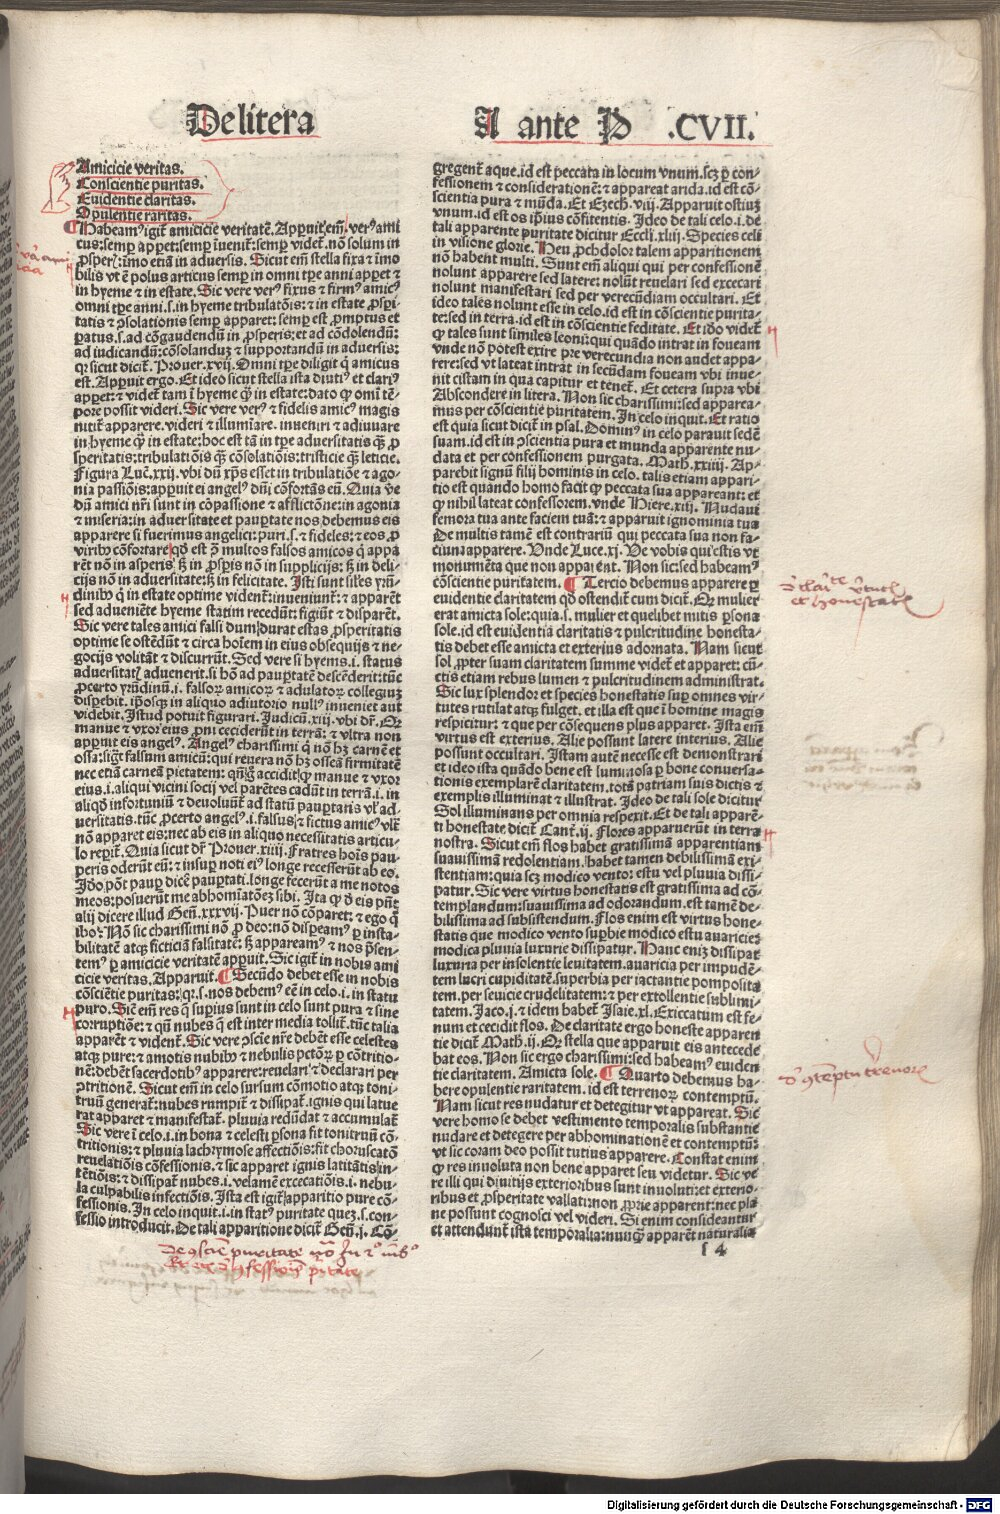 De litera
A ante P .CVII.
Amicicie veritas.
Conscientie puritas.
Euidentie claritas.
Opulentie raritas.
¶ Habeamꝰ igit̃ amicicie veritatē. Apparuit em̃. verꝰ ami
cus: semper apparet: semper īuenit̃: semper videt̃. nō solum in
ꝓsperis: īmo etiā in aduersis. Sicut em̃ stella fixa ⁊ īmo
bilis vt ē polus articus semꝑ in omni tꝑe anni apparet ⁊
in hyeme ⁊ in estate. Sic vere verꝰ fixus ⁊ firmꝰ amicꝰ
omni tꝑe anni .s. in hyeme tribulatōis: ⁊ in estate ꝓsperi
tatis ⁊ ꝯsolationis semꝑ apparet: semꝑ est ꝓmptus et
ꝑatus .s. ad cōgaudendū in ꝓsperis: et ad cōdolendū:
ad iudicandū: cōsolanduꝫ ⁊ supportandū in aduersis:
qꝛ sicut dicit̃. Prouer. xvij. Omni tꝑe diligit q̄ amicus
est. Apparuit ergo. Et ideo sicut stella ista diutiꝰ et clariꝰ
apparet: ⁊ videt̃ tam ī hyeme q̄ in estate: dato ꝙ omī tē-
pore possit videri. Sic vere verꝰ ⁊ fidelis amicꝰ magis
nitit̃ apparere. videri ⁊ illumīare. inueniri ⁊ adiuuare
in hyeme q̄ in estate: hoc est tā in tꝑe aduersitatis q̄ꝫ ꝓ
speritatis: tribulatiōis q̄ꝫ cōsolatiōis: tristicie q̄ꝫ leticie.
Figura Luc̄. xxij. vbi dū xp̄s esset in tribulatiōe ⁊ ago-
nia passiōis: apparuit ei angelꝰ dn̄i cōfortās eū. Quia ve
dū amici nr̄i sunt in cōpassione ⁊ afflictōne: in agonia
⁊ miseria: in aduersitate et paupertate nos debemus eis
apparere si fuerimus angelici: puri .s. ⁊ fideles: ⁊ eos ꝓ
viribꝰ cōfortare qd̄ est ꝯ̄ multos falsos amicos q̄ appa
rēt nō in asperis sꝫ in ꝓsperis nō in supplicijs: sꝫ in deli-
cijs nō in aduersitate: sꝫ in felicitate. Isti sunt sil̄es yrū-
dinibꝰ q̄ in estate optime vident̃: inueniunt̃: ⁊ apparēt
sed adueniēte hyeme statim recedūt: fugiūt ⁊ disparēt.
Sic vere tales amici falsi dum durat estas ꝓsperitatis
optime se ostēdūt ⁊ circa hoīem in eius obsequijs ⁊ ne-
gocijs volitāt ⁊ discurrūt. Sed vere si hyems .i. status
aduersitatꝭ aduenerit. si hō ad paupertatē descēderit: tūc
ꝓcerto yrūdinū .i. falsoꝝ amicoꝝ ⁊ adulatoꝝ collegiuꝫ
disperebit. ipōsqꝫ in aliquo adiutorio nullꝰ inueniet aut
videbit. Istud potuit figurari. Judicū. xiij. vbi dr̄. Qꝛ
manue ⁊ vxor eius ꝓni ceciderūt in terrā: ⁊ vltra non
apparuit eis angelꝰ. Angelꝰ charissimi q̄ nō hꝫ carnē et
ossa: sigt̃ falsum amicū: qui reuera nō hꝫ osseā firmitatē
nec etiā carneā pietatem: qn̄qꝫ accidit ꝙ manue ⁊ vxor
eius .i. aliqui vicini socij vel parētes cadūt in terrā .i. in
aliqd̄ infortuniū ⁊ deuoluūt̃ ad statū paupertatis vl̄ ad-
uersitatis. tūc ꝓcerto angelꝰ .i. falsus ⁊ fictus amicꝰ vltͣ
nō apparet eis: nec ab eis in aliquo necessitatis articu-
lo reperit̃. Quia sicut dr̄ Prouer. xiiij. Fratres hoīs pau-
peris oderūt eū: ⁊ insuꝑ noti eiꝰ longe recesserūt ab eo.
Ido pōt pauꝑ dicē paupertati. longe fecerūt a me notos
meos: posuerūt me abhomīatōeꝫ sibi. Ita ꝙ d eis pn̄t
alij dicere illud Gen̄. xxxvij. Puer nō cōparet: ⁊ ego q̄
ibo: Nō sic charissimi nō ꝓ deo: nō dispeamꝰ ꝑ insta-
bilitatē atqꝫ ficticiā falsitatē: sꝫ appareamꝰ ⁊ nos p̄sen-
temꝰ ꝑ amicicie veritatē apparuit. Sic igit̃ in nobis ami
cicie veritas. Apparuit. ¶ Secūdo debet esse in nobis
cōsciētie puritas: qꝛ .s. nos debemꝰ eē in celo .i. in statu
puro. Sic em̃ res q̄ suꝑius sunt in celo sunt pura ⁊ sine
corruptiōe: ⁊ qn̄ nubes q̄ est inter media tollit̃. tūc talia
apparēt ⁊ vident̃. Sic vere ꝯscie nr̄e debēt esse celestes
atqꝫ pure: ⁊ amotis nubibꝰ ⁊ nebulis petōꝝ ꝑ cōtritio-
nē: debēt sacerdotibꝰ apparere: reuelari ⁊ declarari per
ꝯtritionē. Sicut em̃ in celo sursum cōmotio atqꝫ toni-
truū generat̃: nubes rumpit̃ ⁊ dissipat̃. ignis qui latue
rat apparet ⁊ manifestat̃. pluuia redūdat ⁊ accumulat̃
Sic vere ī celo .i. in bona ⁊ celesti ꝑsona fit tonitruū cō-
tritionis: ⁊ pluuia lachrymose affectiōis: fit choruscatō
reuelatiōis cōfessionis. ⁊ sic apparet ignis latitātis in-
tētiōis: ⁊ dissipat̃ nubes .i. velamē excecatiōis .i. nebu-
la culpabilis infectiōis. Ista est igit̃ apparitio pure cō-
fessionis. In celo inquit .i. in statꝰ puritate queꝫ .s. con-
fessio introducit. De tali apparitione dicit̃ Gen̄. j. Cō-
gregent̃ aque. id est peccata in locum vnum. scꝫ ꝑ con-
fessionem ⁊ considerationē: ⁊ appareat arida. id est cō-
scientia pura ⁊ mūda. Et Ezech. viij. Apparuit ostiuꝫ
vnum. id est os ip̄ius cōfitentis. Ideo de tali celo .i. de
tali apparente puritate dicitur Eccli. xliij. Species celi
in visione glorie. Heu ꝓchdolor talem apparitionem
nō habent multi. Sunt em̃ aliqui qui per confessionē
nolunt apparere sed latere: nolūt reuelari sed excecari
nolunt manifestari sed per verecūdiam occultari. Et
ideo tales nolunt esse in celo. id est in cōscientie purita-
te: sed in terra. id est in cōscientie feditate. Et ido videt̃
ꝙ tales sunt similes leoni: qui quādo intrat in foueam
vnde nō potest exire pre verecundia non audet appa-
rere: sed vt lateat intrat in secūdam foueam vbi inue-
nit cistam in qua capitur et tenet̃. Et cetera supra vbi
Abscondere in litera. Non sic charissimi: sed apparea-
mus per cōscientie puritatem. In celo inquit. Et ratio
est quia sicut dicit̃ in psal. Dominꝰ in celo parauit sedē
suam. id est in ꝯscientia pura et munda apparente nu-
data et per confessionem purgata. Math. xxiiij. Ap-
parebit signū filij hominis in celo. talis etiam appari-
tio est quando homo facit ꝙ peccata sua appareant: et
ꝙ nihil lateat confessorem. vnde Hiere. xiij. Nudaui
femora tua ante faciem tuā: ⁊ apparuit ignominia tua
De multis tamē est contrariū qui peccata sua non fa-
ciunt apparere. Unde Luce. xj. Ue vobis qui estis vt
monumēta que non apparent. Non sic: sed habeamꝰ
cōscientie puritatem. ¶ Tercio debemus apparere ꝑ
euidentie claritatem qd̄ ostendit cum dicit. Qꝛ mulier
erat amicta sole: quia .s. mulier et quelibet mitis ꝑsona
sole. id est euidentia claritatis ⁊ pulcritudine honesta-
tis debet esse amicta et exterius adornata. Nam sicut
sol ꝓpter suam claritatem summe videt̃ et apparet: cū-
ctis etiam rebus lumen ⁊ pulcritudinem administrat.
Sic lux splendor et species honestatis suꝑ omnes vir-
tutes rutilat atqꝫ fulget. et illa est que ī homine magis
respicitur: ⁊ que per cōsequens plus apparet. Ista em̃
virtus est exterius. Alie possunt latere interius. Alie
possunt occultari. Istam autē necesse est demonstrari
et ideo ista quādo bene est luminosa ꝑ bone conuersa-
tionis exemplarē claritatem. totā patriam suis dictis ⁊
exemplis illuminat ⁊ illustrat. Ideo de tali sole dicitur
Sol illuminans per omnia respexit. Et de tali apparē-
ti honestate dicit̃ Cant̃. ij. Flores apparuerūt in terra
nostra. Sicut em̃ flos habet gratissimā apparentiam
suauissimam redolentiam. habet tamen debilissimā exi-
stentiam: quia scꝫ modico vento: estu vel pluuia dissi-
patur. Sic vere virtus honestatis est gratissima ad cō-
templandum: suauissima ad odorandum. est tamē de-
bilissima ad subsistendum. Flos enim est virtus hone-
statis que modico vento suꝑbie modico estu auaricie:
modica pluuia luxurie dissipatur. Hanc eniꝫ dissipat
luxuria per insolentie leuitatem. auaricia per impudē-
tem lucri cupiditatē. superbia per iactantie pomposita
tem. per seuicie crudelitatem: ⁊ per extollentie sublimi-
tatem. Jaco. j. ⁊ idem habet̃ Isaie. xl. Exiccatum est fe-
num et cecidit flos. De claritate ergo honeste apparen
tie dicit̃ Math. ij. Qꝛ stella que apparuit eis antecede
bat eos. Non sic ergo charissimi: sed habeamꝰ euiden
tie claritatem. Amicta sole. ¶ Quarto debemus ha-
bere opulentie raritatem. id est terrenorꝫ contemptū.
Nam sicut res nudatur et detegitur vt appareat. Sic
vere homo se debet vestimento temporalis substantie
nudare et detegere per abhominationē et contemptū:
vt sic coram deo possit tutius apparere. Constat enim
ꝙ res inuoluta non bene apparet seu videtur. Sic ve-
re illi qui diuitijs exterioribus sunt inuoluti: et exterio-
ribus et ꝓsperitate vallati: non ꝓprie apparent: nec pla
ne possunt cognosci vel videri. Si enim consideantur
et attendunt̃ ista temporalia: nunqꝫ apparēt naturalia
f 4